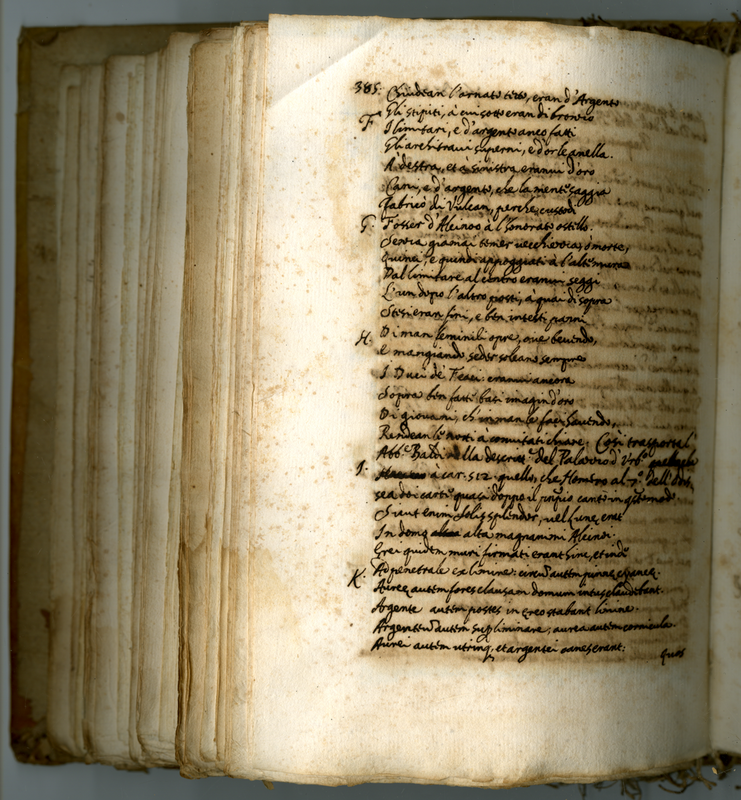 385.
Chiudean l'ornato tetto, eran d'Argento
F. Gli stipiti, à cui sotto eran di bronzo
I limitari, e d'argento anco fatti
Gli architraui superni, e d'or le anella.
A destra, et à sinistra eranui d'oro
Cani, e d'argento, che la mente saggia
Fabricò di Vulcan, perche custodi
G. Fosser d'Alcinoo à l'honorato ostello.
Senza giamai temer uecchiezza, ò morte,
Quinci, e quindi appoggiati à l'alte mura
Dal limitare al centro eranui seggi
L'un dopo l'altro posti, à quai di sopra
Stesi eran fini, e ben intesti panni
H. Di man feminili opre, oue beuendo,
e mangiando seder soleano sempre
I Duci de' Feaci: eranui ancora
Sopra ben fatti basi imagin d'oro
Di giouani, ch'in man le faci hauendo,
Rendean le notti à conuitati chiare. Così trasporta l'
Abb.e Baldi nella descrit.e del Palazzo d'Vrb.o
I. à car. 512. quello, che Homero al 7.o dell'
sea doi carti quasi doppo il prin.o cantò in q.to modo
Sicut enim Solis splendor, uel Lunę erat
In domo alta magnanimi Alcinoi.
Erei quidem muri firmati erant hinc, et inde
K. Ad penetrale ex limine: circum autem pinnę
Aureę autem fores clausam domum intus claudebant.
Argentei autem postes in ęreo stabant limine.
Argenteum autem supliminare, aurea autem cornicula.
Aurei autem utrinq, et argentei canes erant:
Quos